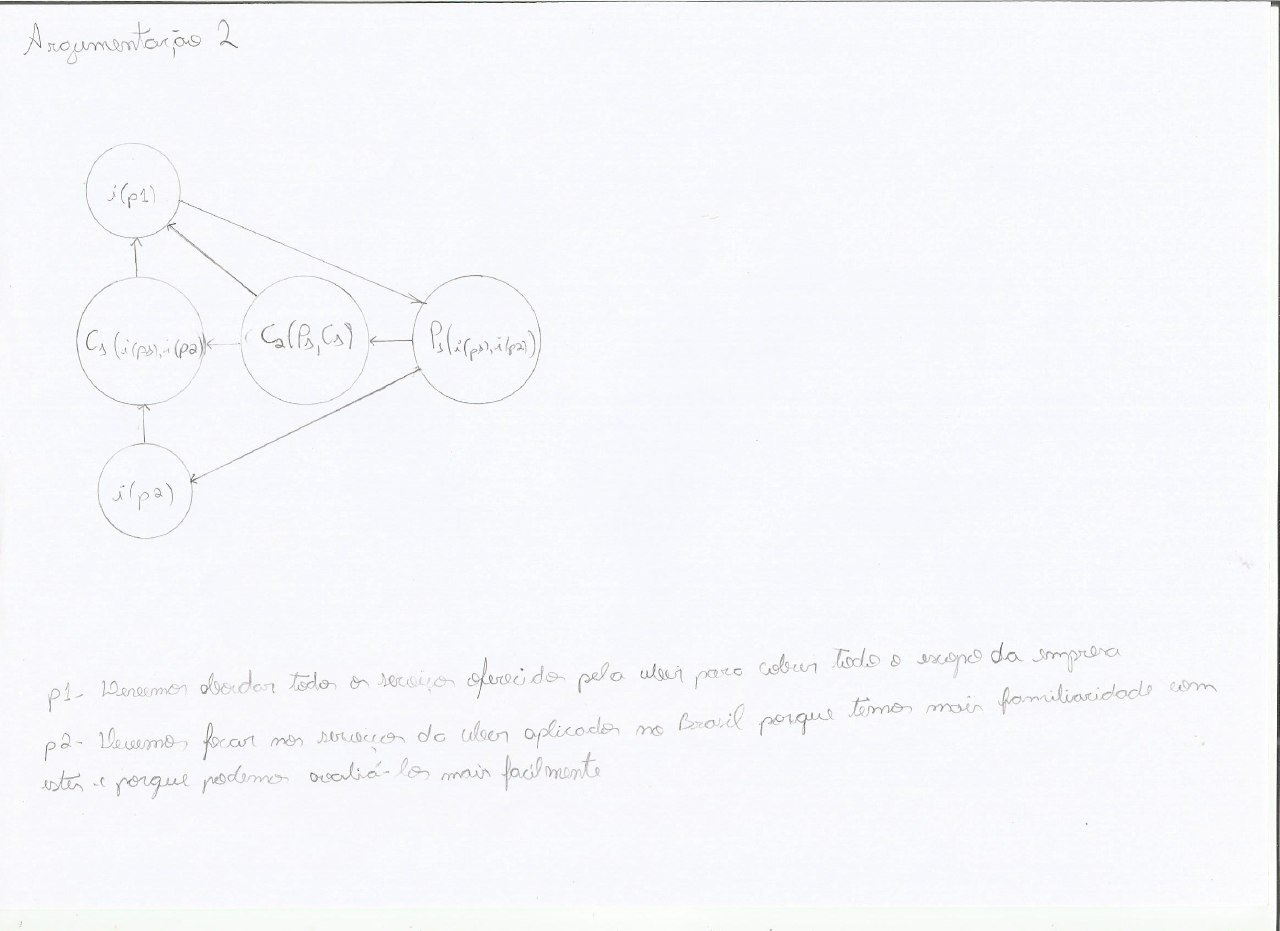 Argumentação 2
i(p1)
C1(i(p1),i(p2))
C2(P1,C1)
P1(i(p1),i(p2))
i(p2)
p1- Devemos abordar todos os serviços oferecidos pela uber para cobrir todo o escopo da empresa
p2- Devemos focar nos serviços da uber aplicados no Brasil porque têmos mais familiaridade com
estes e porque podemos avaliá-los mais facilmente